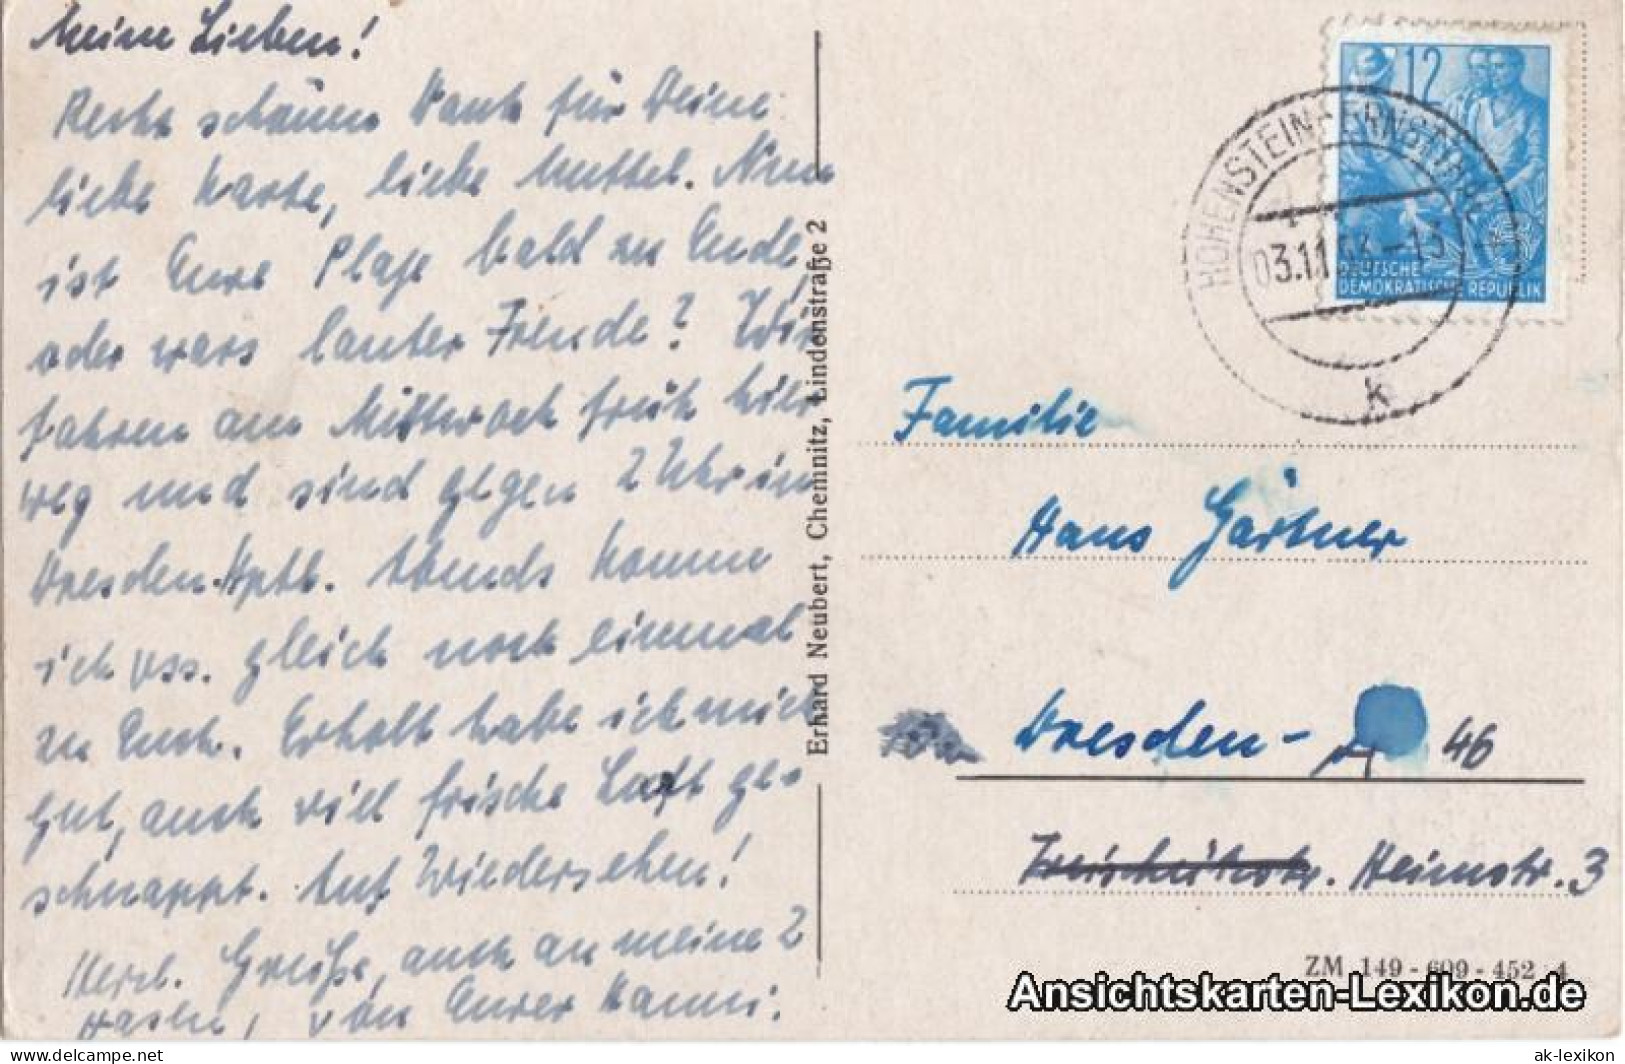 Meine Lieben!
Recht schönen Dank für Deine
liebe Karte, liebe Muttel. Nun
ist Eure Plage bald zu Ende,
oder wars lauter Freude? Wir
fahren am Mittwoch früh hier
weg und sind gegen 2 Uhr in
Dresden-Hptb. Abends komme
ich vss. gleich noch einmal
zu Euch. Erholt habe ich mich
gut, auch viel frische Luft ge-
schnappt. Auf Wiedersehen!
Herzl. Grüße, auch an meine 2
von Eurer Hanni.
Erhard Neubert, Chemnitz, Lindenstraße 2
12
DEUTSCHE
DEMOKRATISCHE REPUBLIK
HOHENSTEIN-ERNSTTHAL
03.11. -13
k
Familie
Hans Gärtner
Dresden- 46
Heimstr. 3
ZM 149 - 609 - 452 4
Ansichtskarten-Lexikon.de
www.delcampe.net
ak-lexikon